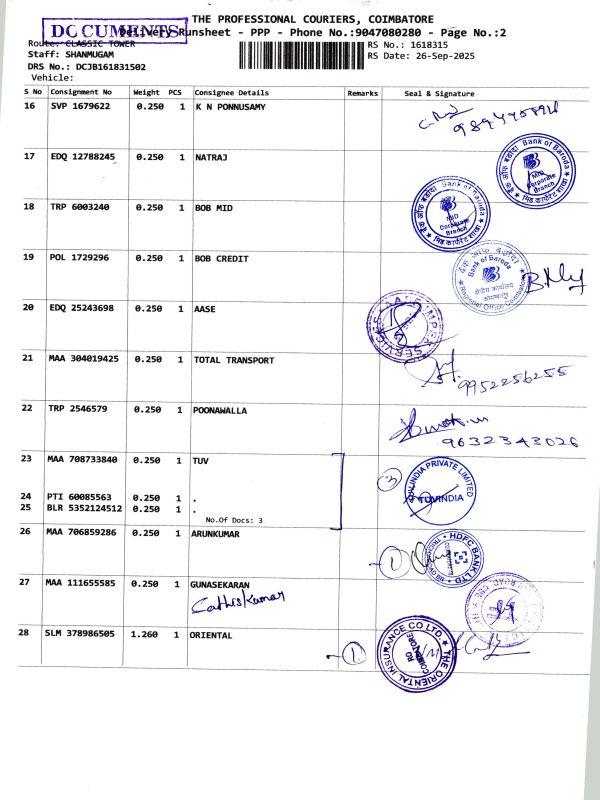 THE PROFESSIONAL COURIERS, COIMBATORE
DOCUMENTS
Delivery Runsheet - PPP - Phone No.:9047080280 - Page No.:2
Route: CLASSIC TOWER
RS No.: 1618315
Staff: SHANMUGAM
RS Date: 26-Sep-2025
DRS No.: DCJB161831502
Vehicle:
S No Consignment No Weight PCS Consignee Details Remarks Seal & Signature
16 SVP 1679622 0.250 1 K N PONNUSAMY
17 EDQ 12788245 0.250 1 NATRAJ
Bank of Baroda
MID Corporate Branch
18 TRP 6003240 0.250 1 BOB MID
Bank of Baroda
MID Corporate Branch
19 POL 1729296 0.250 1 BOB CREDIT
Bank of Baroda
क्षेत्रीय कार्यालय
Regional Office Coimbatore
20 EDQ 25243698 0.250 1 AASE
21 MAA 304019425 1 0.250 TOTAL TRANSPORT
9952256255
22 TRP 2546579 0.250 1 POONAWALLA
9632343026
23 MAA 708733840 0.250 1 TUV
3
INDIA PRIVATE LIMITED
TUV INDIA
24 PTI 60085563 0.250 1 .
25 BLR 5352124512 0.250 1 .
No.Of Docs: 3
26 MAA 706859286 0.250 1 ARUNKUMAR
1
HDFC BANK LTD
27 MAA 111655585 0.250 1 GUNASEKARAN
CathisKumar
28 SLM 378986505 1.260 1 ORIENTAL
1
THE ORIENTAL INSURANCE CO LTD.
RO
COIMBATORE